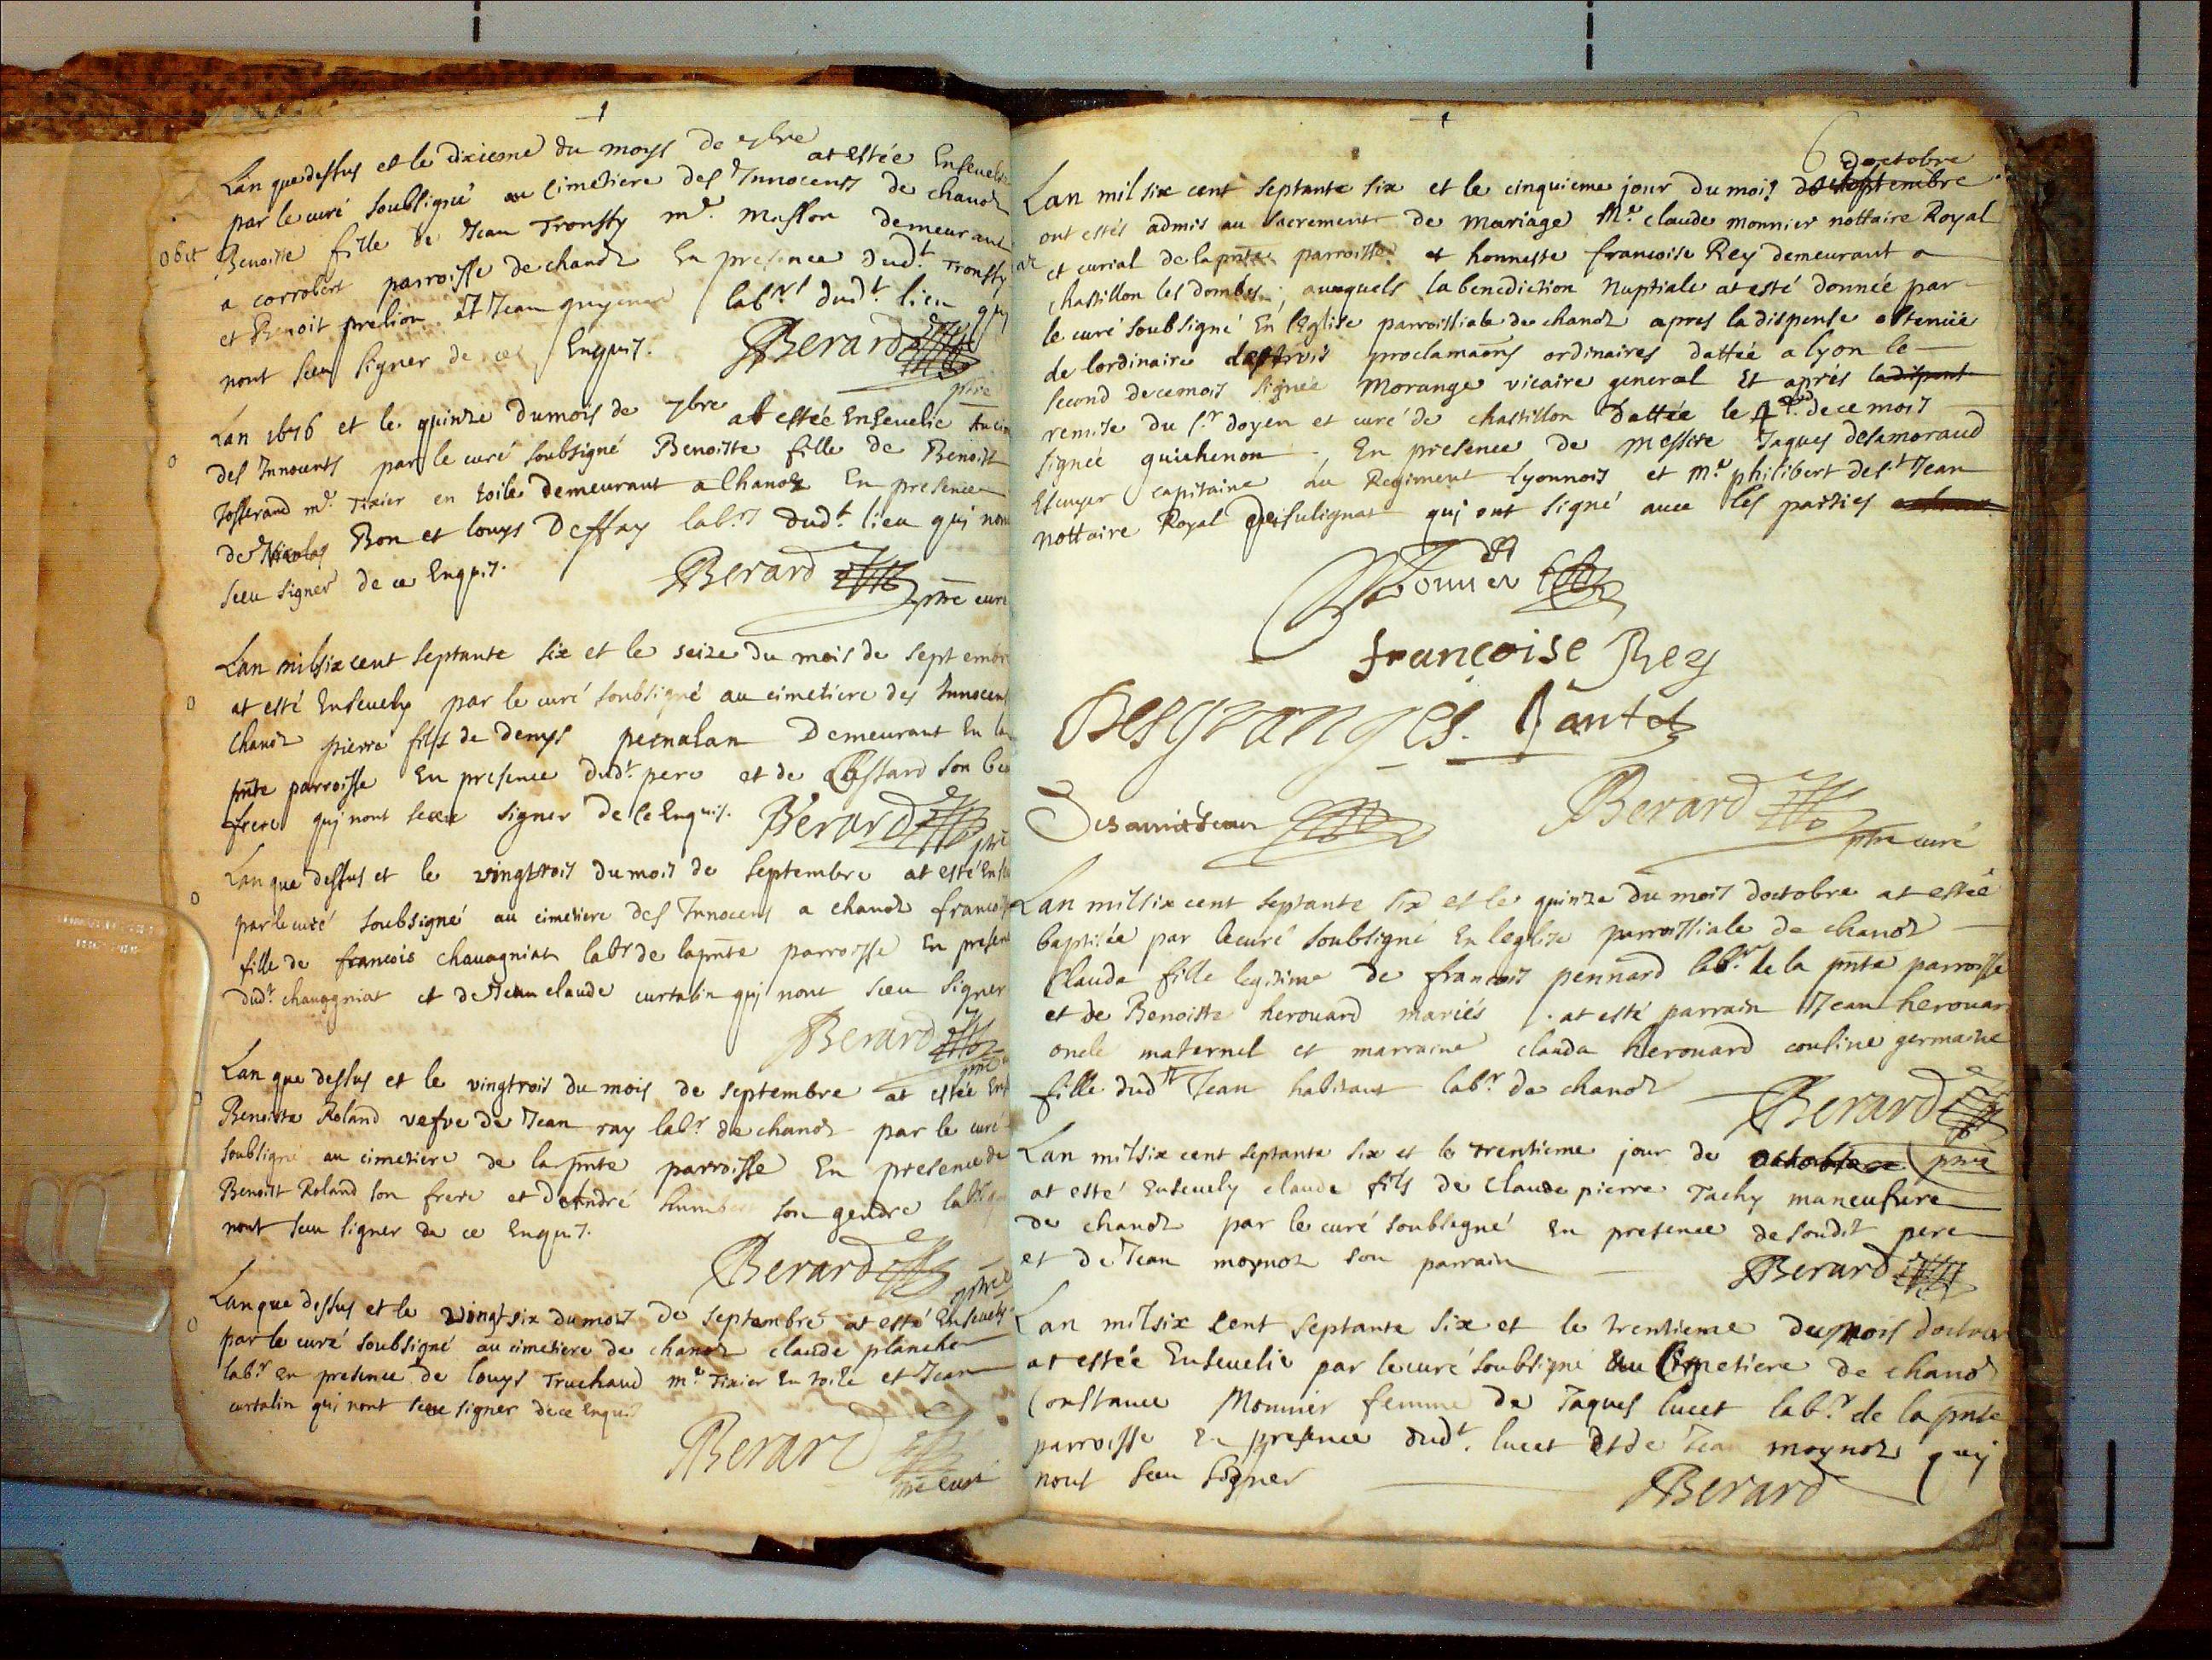 Lan que dessus et le dixieme du moys de 7bre at estée Ensevelie
par le curé soubsigné au Cimetiere des Innocents de chanoz
obit Benoite fille de Jean Tronssy me. masson demeurant
a corrobert parroisse de chanoz En presence dudt. Tronssy
et Benoit prelion et Jean labrs dudt. lieu quj
nont sceu signer de ce Enquis. Berard
ptre
Lan 1676 et le quinze du mois de 7bre at estée Ensevelie Au cim
des Innocents par le curé soubsigné Benoitte fille de Benoist
Josserand me. Tixier en toile demeurant a Chanoz En presence
de Nicolas Bon et louys Deffay labrs dudt. lieu quj nont
sceu signer de ce Enquis. Berard ptre curé
Lan mil six cent septante six et le seize du mois de septembre
at esté Ensevely par le curé soubsigné au cimetiere des Innocens
Chanoz pierre fils de denys pernalan Demeurant En la
pnte parroisse En presence dudt. pere et de son beau
frere quj nont sceu signer de ce Enquis. Berard
ptre
Lan que dessus et le vingtrois du mois de septembre at esté Ens
par le curé soubsigné au cimetiere des Innocens a chanoz francoise
fille de francois chavagniat labr de la pnte parroisse En presen
dudt chavagniat et de Jean claude curtalin quj nont sceu signer
Berard
Lan que dessus et le vingtrois du mois de septembre at estée Ens
Benoitte Roland vefve de Jean ray labr. de chanoz par le curé
soubsigné au cimetiere de la pnte parroisse En presence de
Benoist Roland son frere et de André humbert son gendre
nont sceu signer de ce Enquis.
Berard ptre
Lan que dessus et le vingt six du mois de septembre at esté Ensevely
par le curé soubsigné au cimetiere de chanoz claude planche
labr. en presence de louys Truchaud me. Tixier En toile et Jean
curtalin qui nont sceu signer de ce Enquis
Berard
ptre curé
6 doctobre
Lan mil six cent septante six et le cinquieme jour du mois de septembre
ont estés admis au sacrement de mariage Me. claude monnier nottaire Royal
et curial de la pnte parroisse et honneste francoise Rey demeurant a
chastillon les dombes, auxquels la benediction nuptiale at esté donnée par
le curé soubsigné En l'Eglise parroissiale de chanoz apres la dispense obtenüe
de lordinaire des trois proclamaons ordinaires dattée a lyon le
second de ce mois signée Morange vicaire general Et aprés la dispent
remise du Sr. doyen et curé de chastillon dattée le de ce mois
signée guichenon. En presence de messire Jaques desamoraud
Escuyer capitaine au Regiment Lyonnois et Me. philibert de St Jean
nottaire Royal de sulignat quj ont signé avec les parties
Monnier
françoise Rey
Desgranges. Pantet
Berard
ptre curé
Lan mil six cent septante six et le quinze du mois doctobre at estée
baptisée par le curé soubsigné En leglise parroissiale de chanoz
Claude fille legitime de francois pennard labr. de la pnte parroisse
et de Benoitte herouard mariés. at esté parrain Jean herouar
oncle maternel et marraine clauda herouard cousine germaine
fille dudt Jean habitant labr. de chanoz Berard
Lan mil six cent septante six et le trentieme jour de octobre ptre
at esté Ensevely claude fils de Claude pierre Tachy maneuvre
de chanoz par le curé soubsigné En presence de soudit pere
et de Jean moynoz son parrain Berard
Lan mil six cent septante six et le trentieme du mois doctobr
at estée Ensevelie par le curé soubsigné Au Cimetiere de chanoz
Constance Monnier femme de Jaques lucet labr. de la pnte
parroisse En presence dudt. lucet et de Jean moynoz quj
nont sceu signer Berard